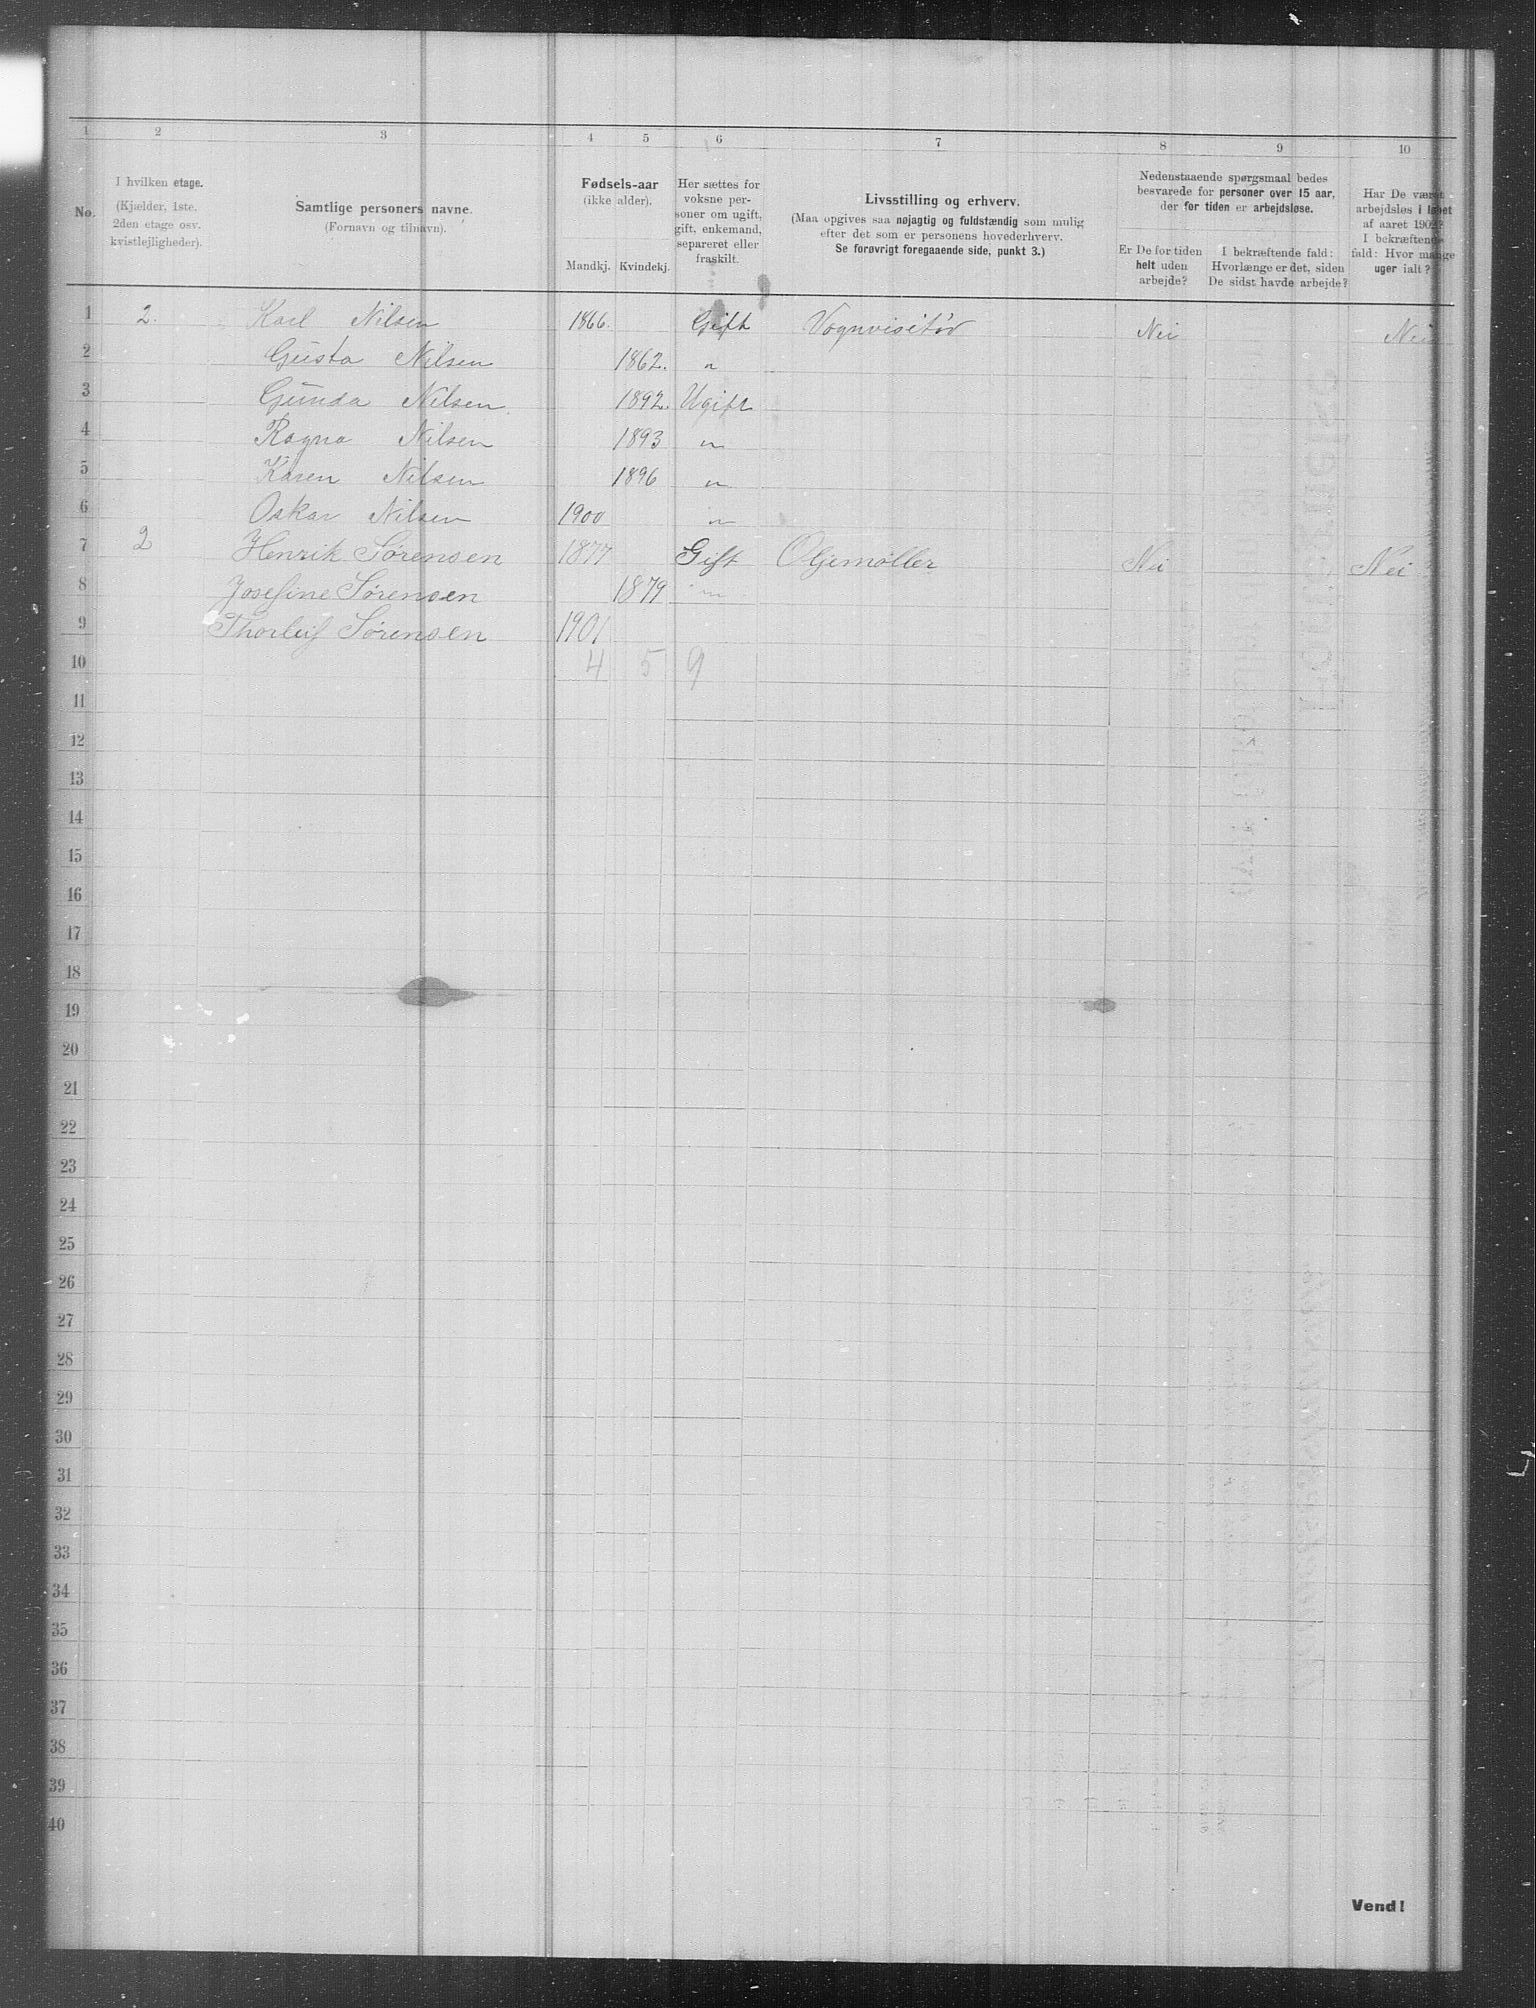 1 2 3 4 5 6 7 8 9 10
No.
I hvilken etage.
(Kjælder, 1ste.
2den etage osv.
kvistlejligheder).
Samtlige personers navne.
(Fornavn og tilnavn).
Fødsels-aar
(ikke alder).
Mandkj. Kvindekj.
Her sættes for
voksne per-
soner om ugift,
gift, enkemand,
separeret eller
fraskilt.
Livsstilling og erhverv.
(Maa opgives saa nøjagtig og fuldstændig som mulig
efter det som er personens hovederhverv.
Se forøvrigt foregaaende side, punkt 3.)
Nedenstaaende spørgsmaal bedes
besvarede for personer over 15 aar,
der for tiden er arbejdsløse.
Er De for tiden
helt uden
arbejde?
I bekræftende fald:
Hvorlænge er det, siden
De sidst havde arbejde?
Har De været
arbejdsløs i løbet
af aaret 1902?
I bekræftende
fald: Hvor mange
uger ialt?
1 2. Karl Nilsen 1866. Gift Vognvisitør Nei Nei
2 Gusta Nilsen 1862. "
3 Gunda Nilsen. 1892. Ugift
4 Ragna Nilsen 1893 "
5 Karen Nilsen 1896 "
6 Oskar Nilsen 1900 "
7 2 Henrik Sørensen 1877 Gift Oljemøller Nei Nei
8 Josefine Sørensen 1879 "
9 Thorleif Sørensen 1901
10 4 5 9
11
12
13
14
15
16
17
18
19
20
21
22
23
24
25
26
27
28
29
30
31
32
33
34
35
36
37
38
39
40
Vend!